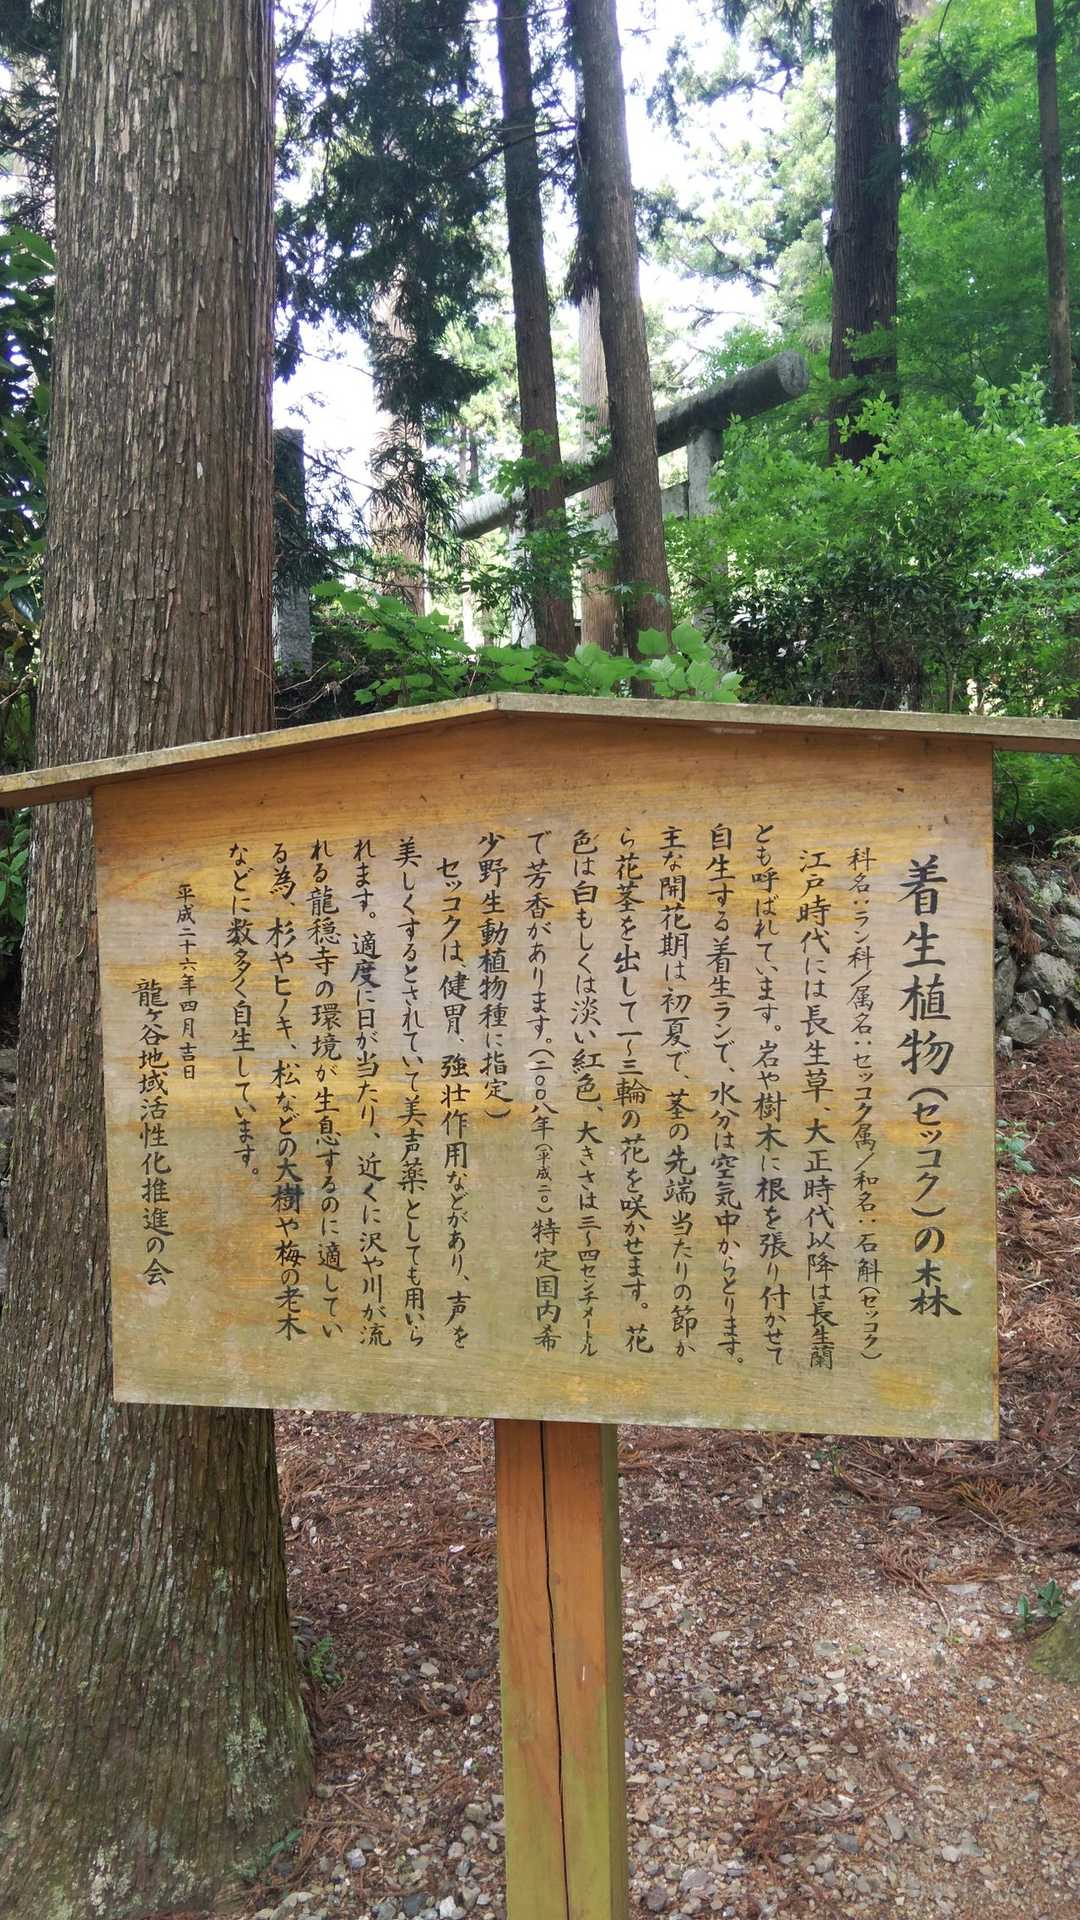 着生植物(セッコク)の森
科名:ラン科/属名:セッコク属/和名:石斛(セッコク)
江戸時代には長生草、大正時代以降は長生蘭
とも呼ばれています。岩や樹木に根を張り付かせて
自生する着生ランで、水分は空気中からとります。
主な開花期は初夏で、茎の先端当たりの節か
ら花茎を出して一~三輪の花を咲かせます。花
色は白もしくは淡い紅色、大きさは三~四センチメートル
で芳香があります。(二〇〇八年(平成二〇)特定国内希
少野生動植物種に指定)
セッコクは、健胃、強壮作用などがあり、声を
美しくするとされていて美声薬としても用いら
れます。適度に日が当たり、近くに沢や川が流
れる龍穏寺の環境が生息するのに適してい
る為、杉やヒノキ、松などの大樹や梅の老木
などに数多く自生しています。
平成二十六年四月吉日
龍ヶ谷地域活性化推進の会